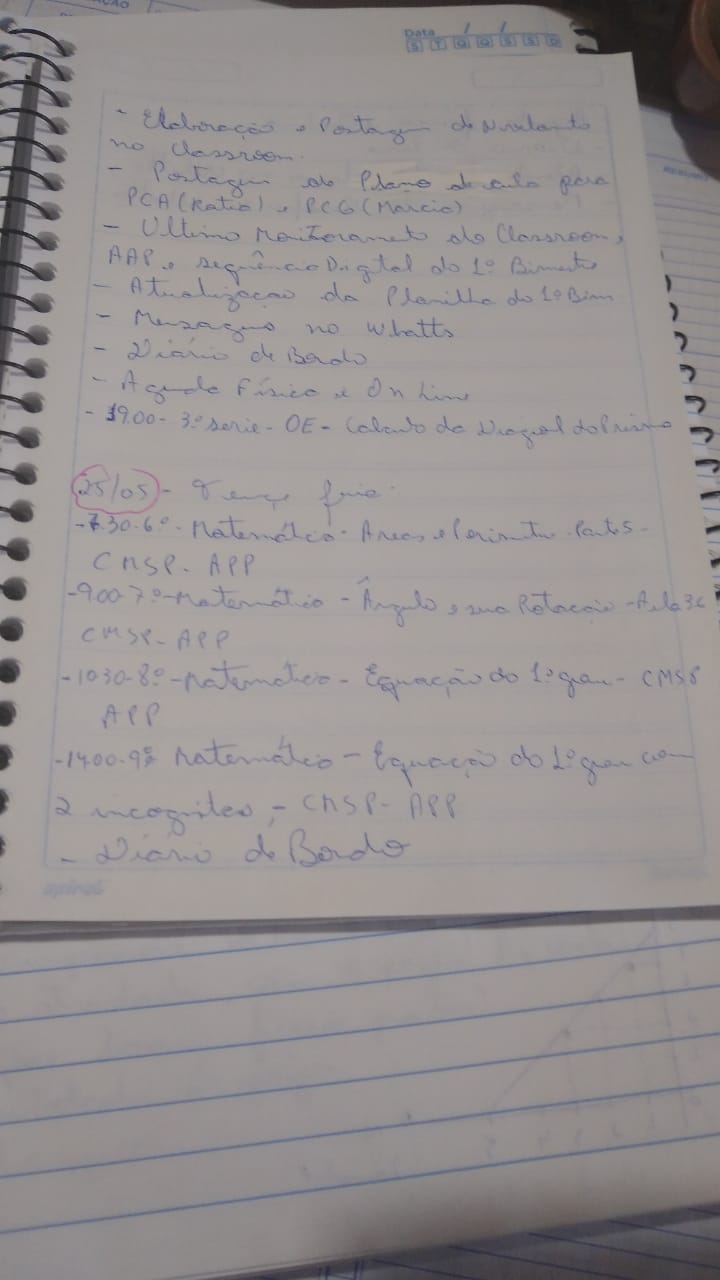 Data / /
S T Q Q S S D
- Elaboração e Postagem de Nivelamto
no Classroom.
- Postagem do Plano de aula para
PCA (Katia) e PCG (Marcia)
- Ultimo Monitoramento do Classroom,
AAP e sequência Digital do 1º Bimestre
- Atualização da Planilha do 1º Bim
- Mensagens no Whatts
- Diário de Bordo
- Agenda Física e On Line
- 19.00 - 3ª serie - OE - Calculo da Diagonal do Prisma
25/05 - Terça feira.
- 7.30 - 6º - Matemática - Areas e Perimetro - Parte 5 -
CMSP - APP
- 9.00 - 7º - Matemática - Ângulo e sua Rotação - Aula 36
CMSP - APP
- 10.30 - 8º - Matemática - Equação do 1º grau - CMSP
APP
- 14.00 - 9º Matemática - Equação do 1º grau com
2 incognitas, - CMSP - APP
- Diário de Bordo